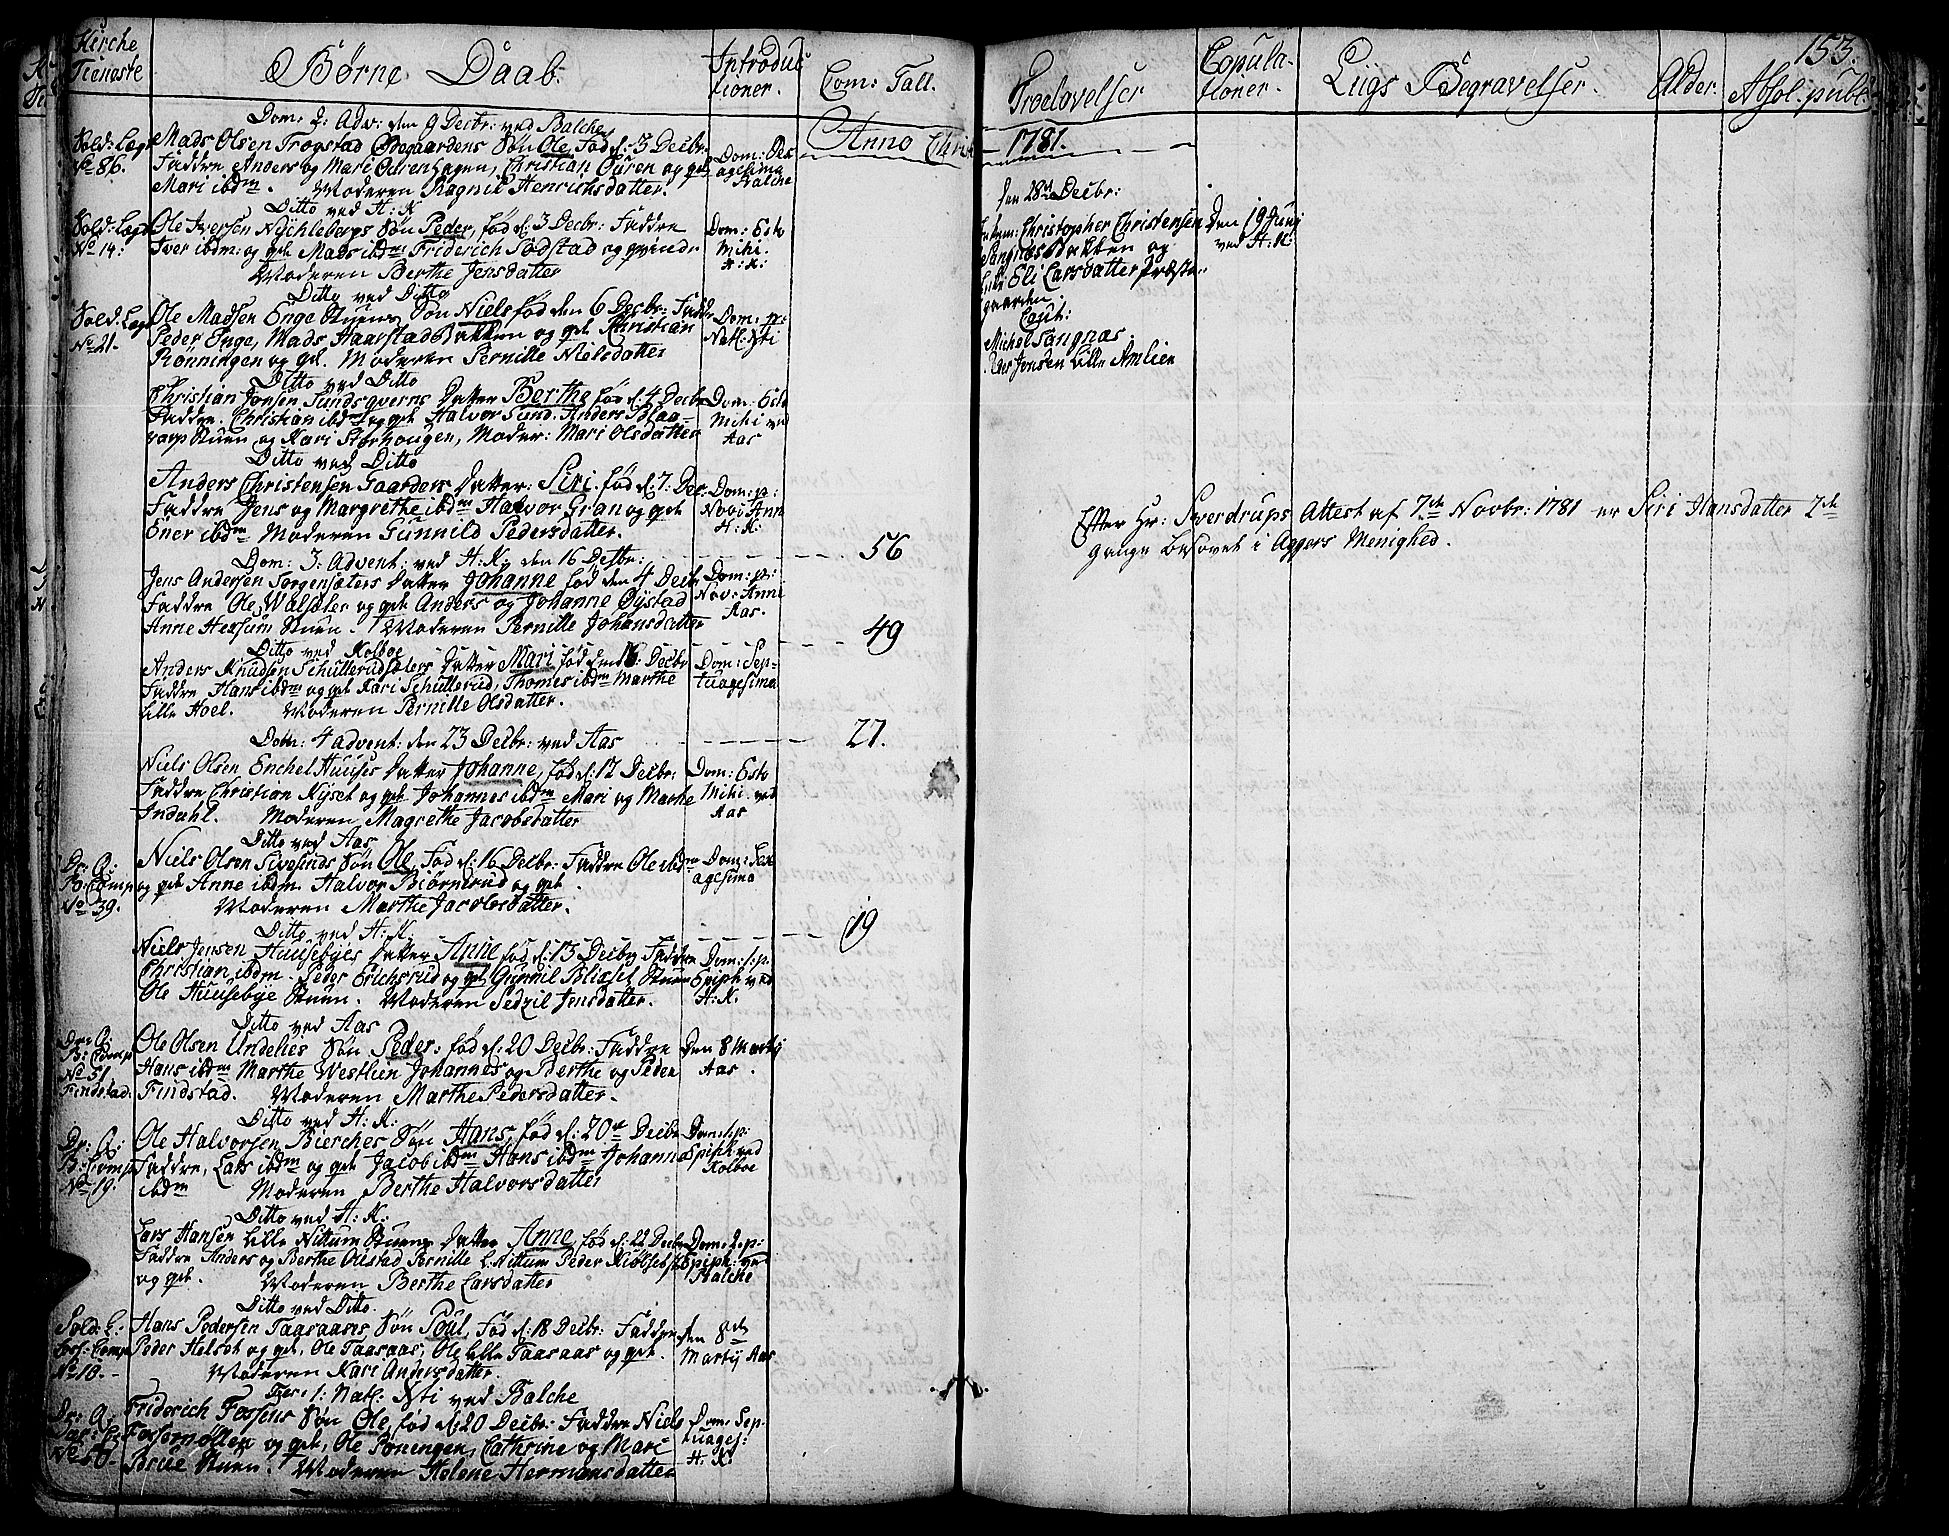 Kirche
Tieneste
Børne Daab.
Introduc
tioner.
Com: Tall.
Troelovelser
Copula-
tioner.
Liigs Begravelser.
Alder.
Absol. publ.
153.
Anno Christi 1781.
Dom: 2: Adv: den 9 Decbr: ved Balche
Sold: Lægd
No 86.
Mads Olsen Trogstad Ødegaardens Søn Ole, Fød d: 3 Decbr.
Faddre Anders og Mari Ourenhagen, Christian Ouren og qvd
Mari ibdm. Moderen Ragnil Henrichsdatter.
Dom: Sex
agesima
Balche
Ditto ved H: K
Sold: Lægd
No 14:
Ole Iversen Nychlebyes Søn Peder, fød d: 3 Decbr: Faddre
Iver ibdm: og qvd Mads ibdm Friderich Sodstad og qvinde
Moderen Berthe Jensdatter
Dom: Esto
Mihi.
H: K:
Ditto ved Ditto
Sold: Lægd
No 21.
Ole Madsen Enge Stuens Søn Niels fød den 6 Decbr: Faddr
Peder Enge, Mads Haarstad Bakken og qvd Christian
Rønningen og qvd. Moderen Pernille Nielsdatter
Dom: p:
Natl: Xsti
Ditto ved Ditto
Christian Jonsen Sundsqverns Datter Berthe fød d: 4 Decbr
Faddre. Christian ibdm og qvd Halvor Sund. Anders Blaa-
varp Stuen og Kari Storhougen, Moder: Mari Olsdatter
Dom: Esto
Mihi ved
Aas
Ditto ved Ditto
Anders Christensen Gaarders Datter: Siri. fød d: 7: Dec.
Faddre Jens og Margrethe ibdm Halvor Gran og qvd
Ener ibdm Moderen Gunnild Pedersdatter.
Dom: p:
Novi Ann
H: K:
Dom: 3: Advent: ved H: K: den 16 Decbr: 56
Jens Andersen Sorgensæters Datter Johanne fød den 4 Decbr
Faddre Ole Walsæter og qvd Anders og Johanne Øystad
Anne Hexum Stuen. Moderen Pernille Johansdatter
Dom: p:
Nov: Anni
Aas.
Ditto ved Kolboe 49
Anders Knudsen Schullerudsæters Datter Mari fød den 16: Decbr
Faddre Hans ibdm og qvd Kari Schullerud, Thomes ibdm Marthe
Lille Hoel. Moderen Pernille Olsdatter.
Dom: Sep-
tuagesima
Dom: 4 Advent: den 23 Decbr: ved Aas 27.
Niels Olsen Enchel Huuses Datter Johanne, fød d: 12 Decbr:
Faddre Christian Nyset og qvd Johannes ibdm Mari og Marthe
Indahl. Moderen Magrethe Jacobsdatter
Dom: Esto
Mihi ved
Aas
Ditto ved Aas
Dr: Q:
B: Comp
No 39.
Niels Olsen Sivesinds Søn Ole. Fød d: 16 Decbr: Faddre Ole ibdm
og qvd Anne ibdm. Halvor Biørnerud og qvd.
Moderen Marthe Jacobsdatter.
Dom: Sex
agesima
Ditto ved H: K. 19
Niels Jensen Huusebyes Datter Anne fød d: 13 Decbr Faddre
Christian ibdm. Peder Erichsrud og qvd Gunnil Blixset Stuen
Ole Huusebye Stuen. Moderen Sedzil Jensdatter.
Dom: 1. p.
Epiph ved
H: K.
Ditto ved Aas
Dr: Q:
B: Comp
No 51
Findstad.
Ole Olsen Undelies Søn Peder: fød d: 20 Decbr: Faddre
Hans ibdm Marthe Westlien Johannes og Berthe og Peder
Findstad. Moderen Marthe Pedersdatter.
Den 8 Martij
Aas.
Ditto ved H: K:
Dr: Q:
B: Comp
No 19.
Ole Halvorsen Bierches Søn Hans, fød d: 20de Decbr
Faddre, Lars ibdm og qvd Jacob ibdm Hans ibdm Johanne
ibdm Moderen Berthe Halvorsdatter
Dom: 1 p:
Epiph ved
Kolboe
Ditto ved H: K:
Lars Hansen Lille Nittum Stuens Datter Anne, fød d: 22 Decbr
Faddre Anders og Berthe Olestad Pernille L: Nittum Peder Kiølset
og qvd. Moderen Berthe Larsdatter
Dom: 2. p:
Epiph: ved
Balche
Ditto ved Ditto.
Sold: L:
Comp
No 10.
Hans Pedersen Taasaases Søn Poul, Fød d: 18 Decbr: Faddre
Peder Helset og qvd, Ole Taasaas, Ole Lille Taasaas og qvd.
Moderen Kari Andersdatter.
den 8de
Martij Aas
Fer: 1: Natl. Xsti ved Balche
Dr: Q:
No 50.
Friderich Fossens Søn Ole, fød d: 20 Decbr: Faddre Niels
Fossemøllen og qvd, Ole Roningen, Cathrine og Mari
Brue Stuen. Moderen Helene Hermansdatter
Dom: Sep-
tuages:
H: K:
den 28de Decbr:
Christopher Christensen
Sangnæsbakken og
Eli Larsdatter Præste-
gaarden.
Caut:
Michel Sangnæs
Jensen Lille Amlien
Den 19 Junj
ved H: K:
Efter Hr: Sverdrups Attest af 7de Novbr: 1781 er Siri Hansdatter 2de
gange besovet i Aggers Menighed.